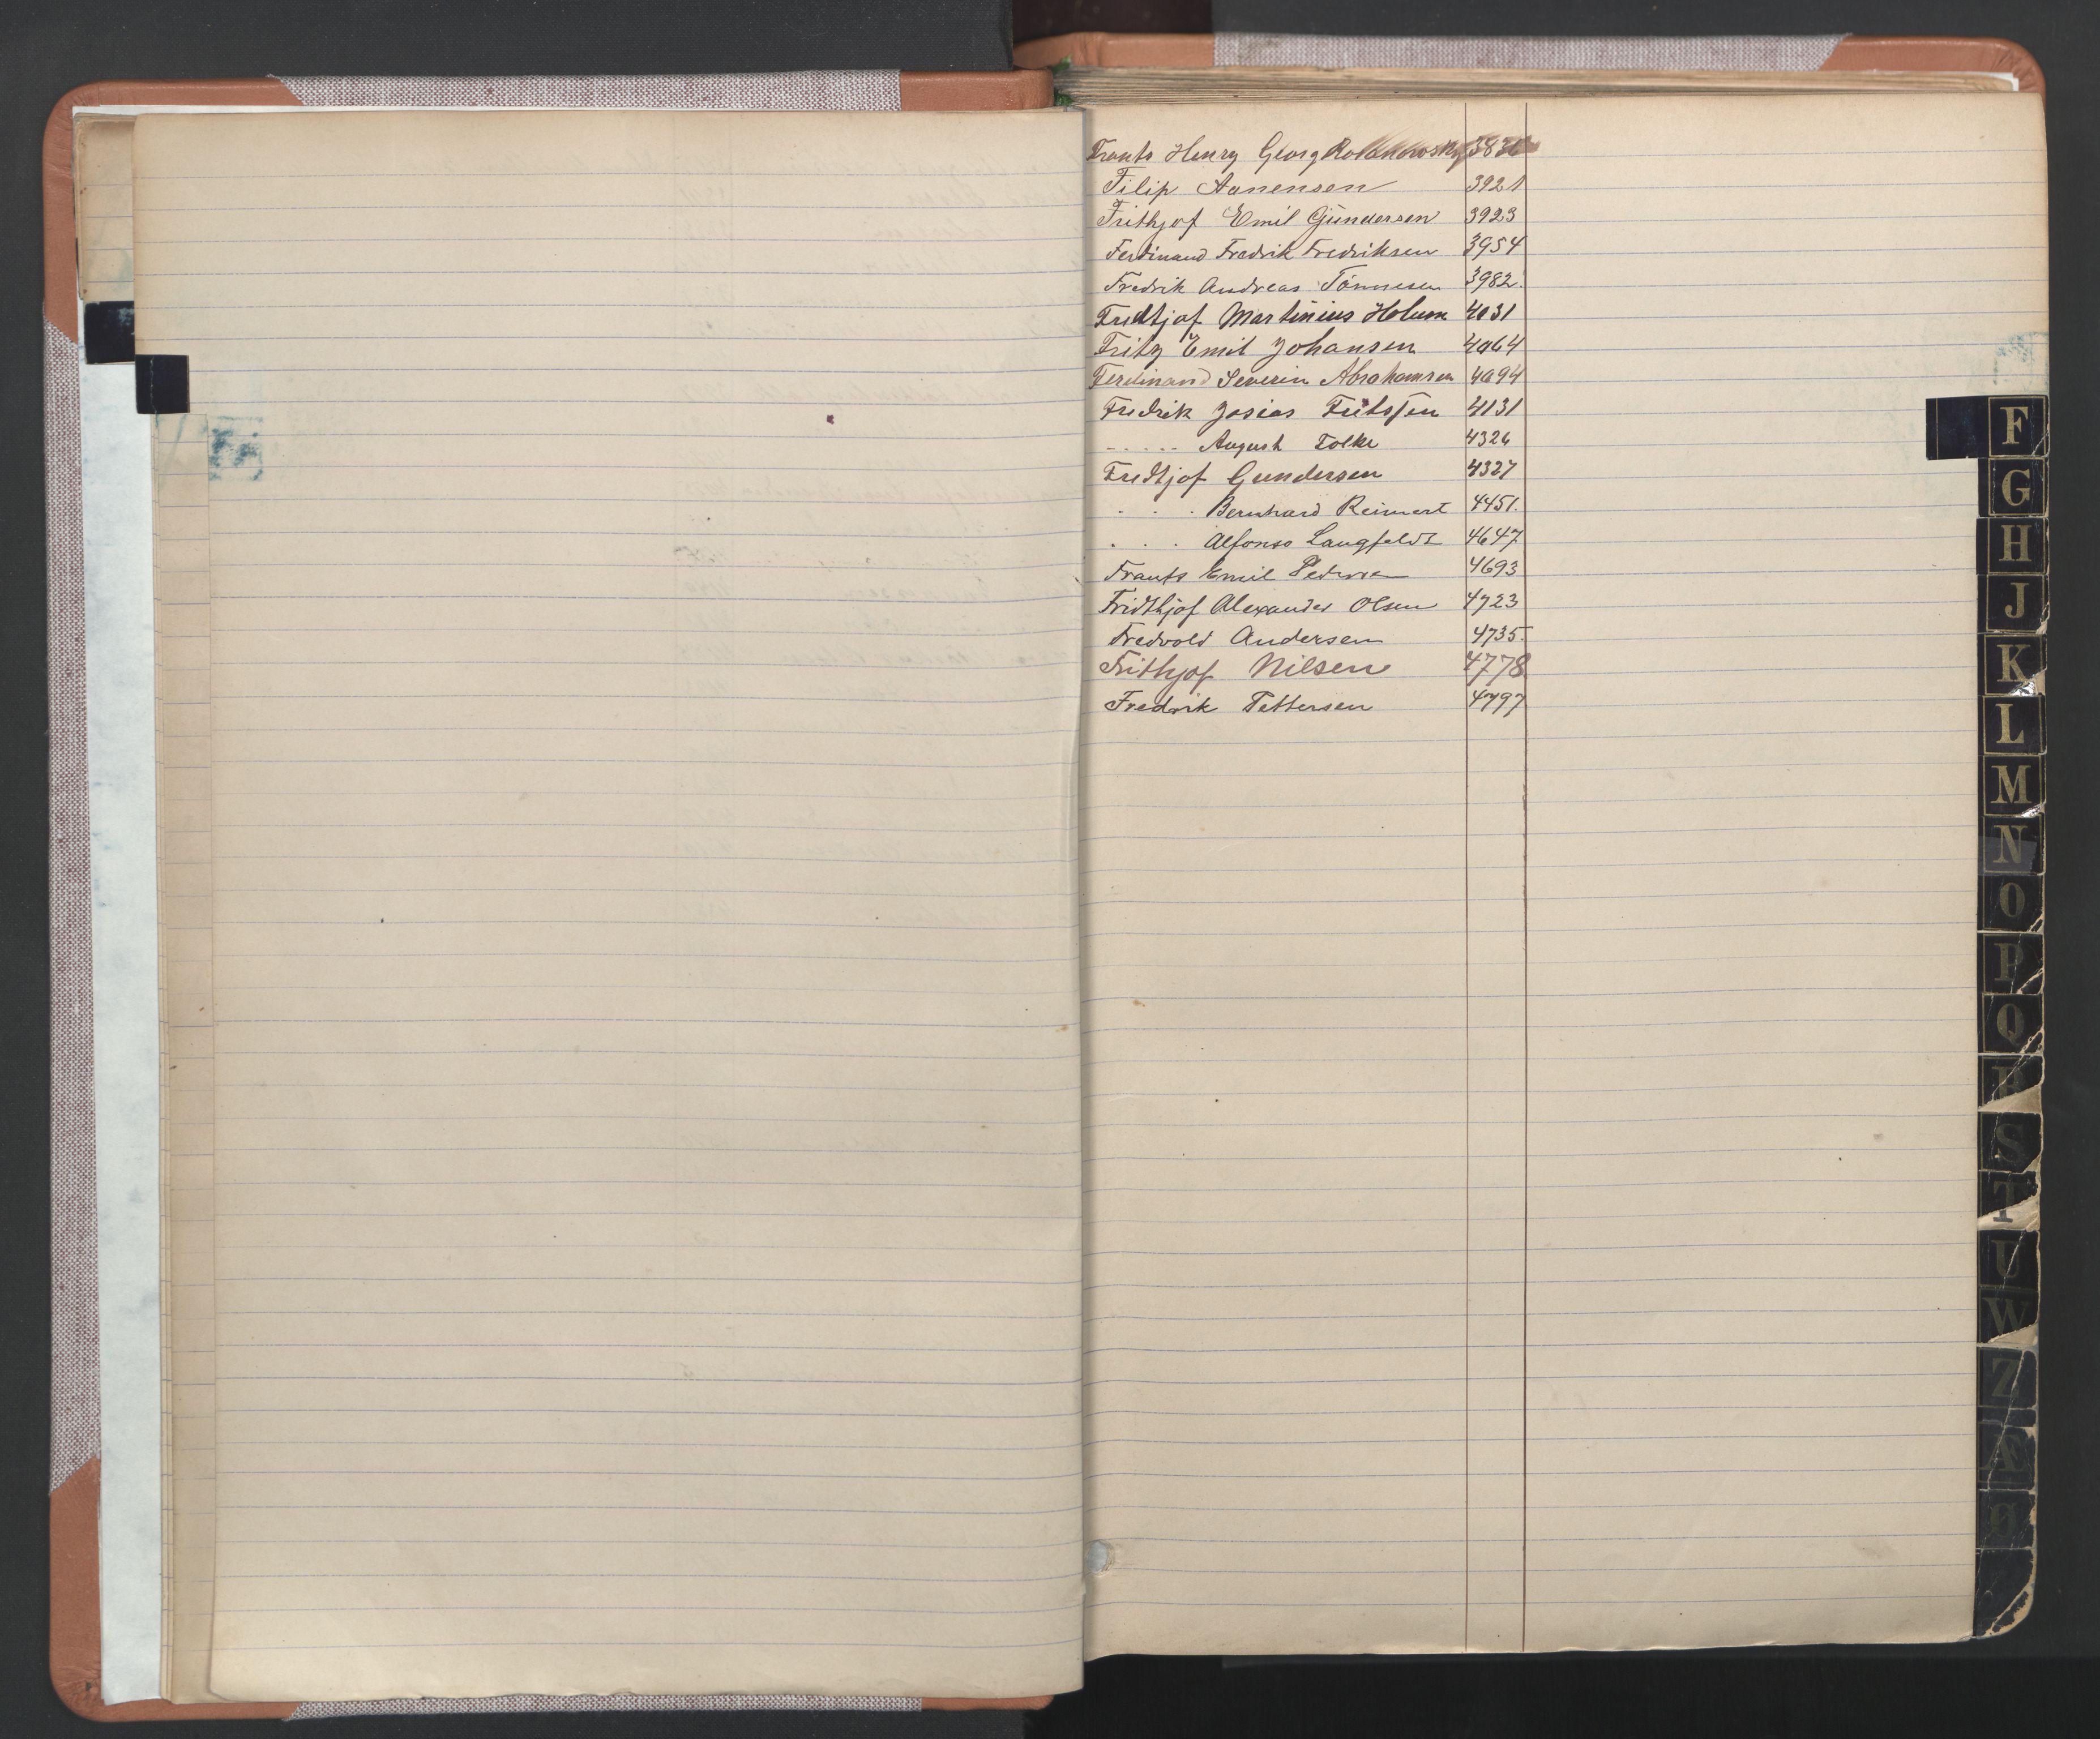 Frants Henry Georg
Filip Aanensen 3921
Frithjof Emil Gundersen 3923
Ferdinand Fredrik Fredriksen 3954
Fredrik Andreas Tönnesen 3982
Fredtjof Martinius Holum 4031
Fritz Emil Johansen 4064
Ferdinand Severin Abrahamsen 4094
Fredrik Josias 4131
- - - - - August Folke 4326
Fredtjof Gundersen 4327
- - - Bernhard Reimert 4451.
. . . Alfonso Langfeldt 4647
Frants Emil Pedersen 4693
Fridthjof Alexander Olsen 4723
Fredvold Andersen 4735.
Frithjof Nilsen 4778
Fredrik Pettersen 4797
F
G
H
J
K
L
M
N
O
P
Q
R
S
T
U
W
Z
Æ
Ø